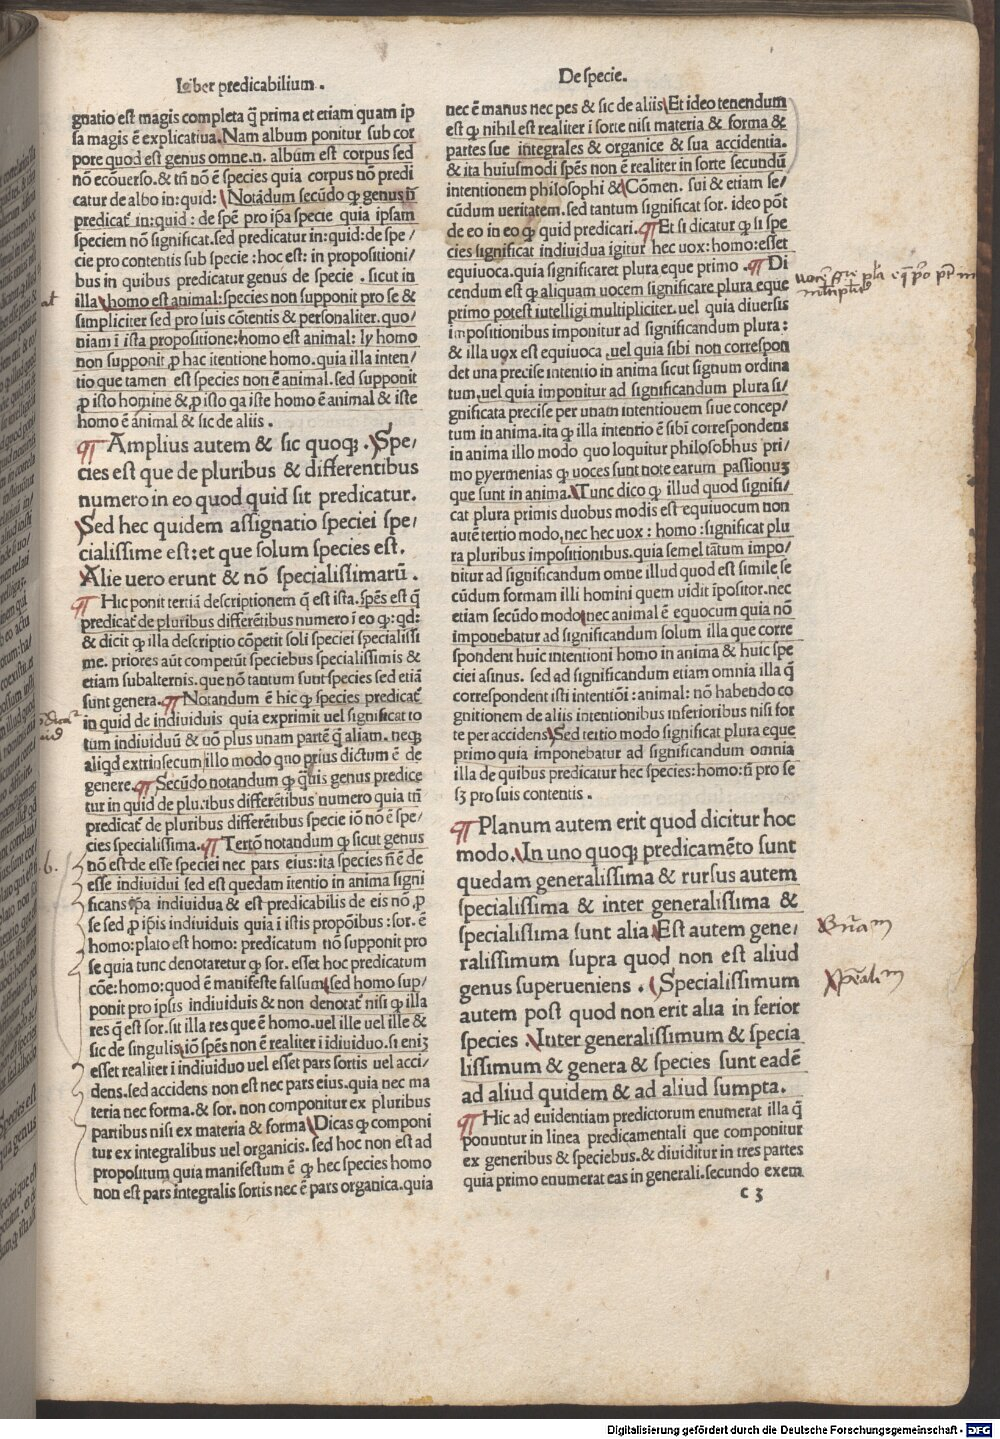 Liber predicabilium .
gnatio est magis completa q̃ prima et etiam quam ip
sa magis ē explicatiua. Nam album ponitur sub cor
pore quod est genus omne.n. album est corpus sed
nō ecōuerso.& tñ nō ē species quia corpus nō predi
catur de albo in:quid: Notādum secūdo ꝙ genus ñ
predicat̃ in:quid : de spē pro ip̄a specie quia ipsam
speciem nō significat.sed predicatur in:quid:de spe/
cie pro contentis sub specie :hoc est: in propositioni/
bus in quibus predicatur genus de specie . sicut in
illa homo est animal:species non supponit pro se &
simpliciter sed pro suis cōtentis & personaliter.quo/
niam ī ista propositione:homo est animal: ly homo
non supponit ꝓ hac itentione homo.quia illa inten/
tio que tamen est species non ē animal.sed supponit
ꝓ isto homine & ꝓ isto qa iste homo ē animal & iste
homo ē animal & sic de aliis .
¶ Amplius autem & sic quoqꝫ . Spe/
cies est que de pluribus & differentibus
numero in eo quod quid sit predicatur.
Sed hec quidem assignatio speciei spe/
cialissime est:et que solum species est.
Alie uero erunt & nō specialissimarū .
¶ Hic ponit tertiā descriptionem q̄ est ista.spēs est q̄
predicat̃ de pluribus differētibus numero ī eo ꝙ:qd:
& dicit ꝙ illa descriptio cōpetit soli speciei specialissi
me. priores aūt competūt speciebus specialissimis &
etiam subalternis.que nō tantum sunt species sed etiā
sunt genera. ¶ Notandum ē hic ꝙ species predicat̃
in quid de indiuiduis quia exprimit uel significat to
tum indiuiduū & uō plus unam partē q̃ aliam. neqꝫ
aliqd extrinsecum illo modo quo prius dictum ē de
genere. ¶ Secūdo notandum ꝙ q̃uis genus predice
tur in quid de pluribus differētibus numero quia tñ
predicat̃ de pluribus differētibus specie iō nō ē spe/
cies specialissima. ¶ Tertō notandum ꝙ sicut genus
nō est de esse speciei nec pars eius:ita species ñ ē de
esse indiuidui sed est quedam itentio in anima signi
ficans ip̄a indiuidua & est predicabilis de eis nō ꝓ
se sed ꝓ ip̄is indiuiduis quia ī istis propōibus :sor. ē
homo:plato est homo: predicatum nō supponit pro
se quia tunc denotaretur ꝙ sor. esset hoc predicatum
cōe:homo:quod ē manifeste falsum sed homo sup/
ponit pro ipsis indiuiduis & non denotat̃ nisi ꝙ illa
res q̄ est sor.sit illa res que ē homo.uel ille uel ille &
sic de singulis iō spēs non ē realiter ī īdiuiduo.si eniꝫ
esset realiter ī indiuiduo uel esset pars sortis uel acci/
dens.sed accidens non est nec pars eius.quia nec ma
teria nec forma.& sor. non componitur ex pluribus
partibus nisi ex materia & forma Dicas ꝙ componi
tur ex integralibus uel organicis.sed hoc non est ad
propositum quia manifestum ē ꝙ hec species homo
non est pars integralis sortis nec ē pars organica.quia
De specie.
nec ē manus nec pes & sic de aliis Et ideo tenendum
est ꝙ nihil est realiter ī sorte nisi materia & forma &
partes sue integrales & organice & sua accidentia.
& ita huiusmodi spēs non ē realiter in sorte secundū
intentionem philosophi & Cōmen. sui & etiam se/
cūdum ueritatem.sed tantum significat sor. ideo pōt
de eo in eo ꝙ quid predicari. ¶ Et si dicatur ꝙ si spe
cies significat indiuidua igitur hec uox:homo:esset
equiuoca.quia significaret plura eque primo . ¶ Di
cendum est ꝙ aliquam uocem significare plura eque
primo potest iutelligi multipliciter.uel quia diuersis
impositionibus imponitur ad significandum plura:
& illa uox est equiuoca .uel quia sibi non correspon
det una precise intentio in anima sicut signum ordina
tum.uel quia imponitur ad significandum plura si/
gnificata precise per unam intentiouem siue concep/
tum in anima.ita ꝙ illa intentio ē sibi correspondens
in anima illo modo quo loquitur philosobhus pri/
mo pyermenias ꝙ uoces sunt note earum passionuꝫ
que sunt in anima. Tunc dico ꝙ illud quod signifi/
cat plura primis duobus modis est equiuocum non
autē tertio modo.nec hec uox : homo :significat plu
ra pluribus impositionibus.quia semel tātum impo/
nitur ad significandum omne illud quod est simile se
cūdum formam illi homini quem uidit īpositor.nec
etiam secūdo modo nec animal ē equocum quia nō
imponebatur ad significandum solum illa que corre
spondent huic intentioni homo in anima & huic spe
ciei asinus. sed ad significandum etiam omnia illa q̄
correspondent isti intentiōi :animal: nō habendo co
gnitionem de aliis intentionibus inferioribus nisi for
te per accidens Sed tertio modo significat plura eque
primo quia imponebatur ad significandum omnia
illa de quibus predicatur hec species:homo:ñ pro se
sꝫ pro suis contentis .
¶ Planum autem erit quod dicitur hoc
modo. In uno quoqꝫ predicamēto sunt
quedam generalissima & rursus autem
specialissima & inter generalissima &
specialissima sunt alia Est autem gene/
ralissimum supra quod non est aliud
genus superueniens . Specialissimum
autem post quod non erit alia in ferior
species . Inter generalissimum & specia
lissimum & genera & species sunt eadē
ad aliud quidem & ad aliud sumpta.
¶ Hic ad euidentiam predictorum enumerat illa q̄
ponuntur in linea predicamentali que componitur
ex generibus & speciebus.& diuiditur in tres partes
quia primo enumerat eas in generali.secundo exem
c 3
Digitalisierung gefördert durch die Deutsche Forschungsgemeinschaft - DFG